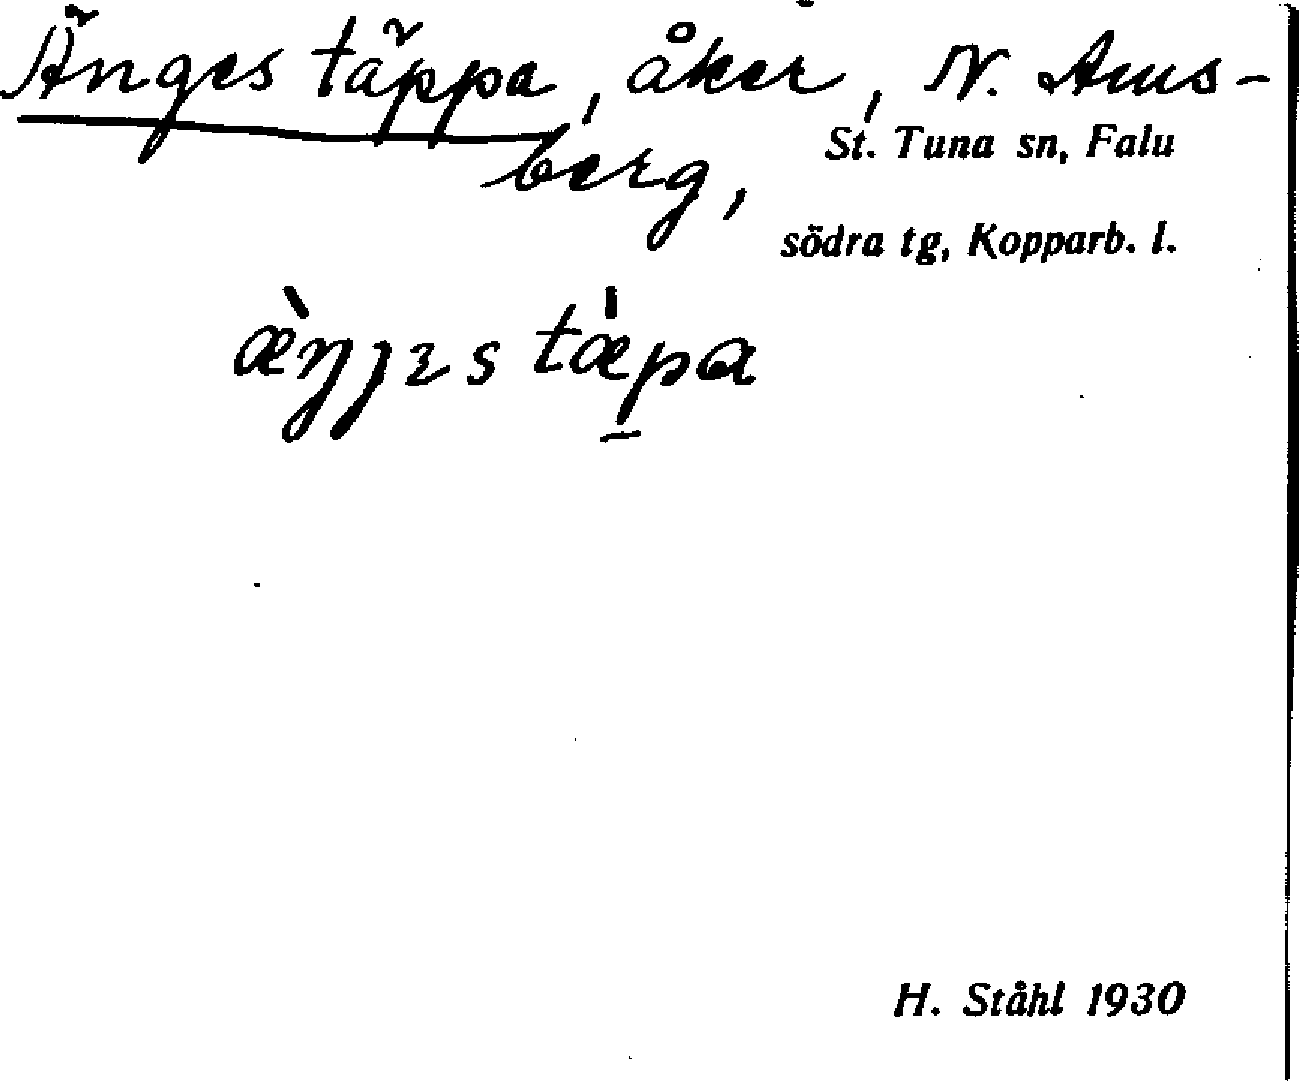 Änges täppa, åker, N. Ams-
berg,
St. Tuna sn, Falu
södra tg, Kopparb. l.
H. Ståhl 1930